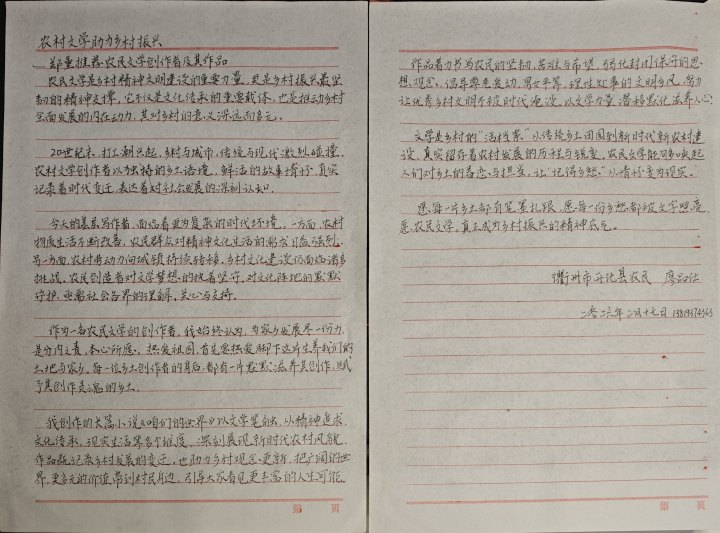 农村文学助力乡村振兴
郑重推荐农民文学创作者及其作品
农民文学是乡村精神文明建设的重要力量,更是乡村振兴最坚
韧的精神支撑,它不仅是文化传承的重要载体,也是推动乡村
全面发展的内在动力,其对乡村的意义深远而多元。
20世纪末,打工潮兴起,乡村与城市,传统与现代激烈碰撞,
农村文学创作者以独特的乡土语境,鲜活的故事情节,真实
记录着时代变迁,表达着对社会发展的深刻认知。
今天的基层写作者,面临着更为复杂的时代环境。一方面,农村
物质生活不断改善,农民群众对精神文化生活的需求日益强烈;
另一方面,农村劳动力向城镇持续转移,乡村文化建设仍面临诸多
挑战。农民创造者对文学梦想的执着坚守,对文化阵地的默默
守护,亟需社会各界的理解,关心与支持。
作为一名农民文学的创作者,我始终认为,为家乡发展尽一份力,
是分内之责,本心所愿,热爱祖国,首先要热爱脚下这片生养我们的
土地与家乡。每一位乡土创作者的身后,都有一片默默滋养其创作,赋
予其创作灵魂的乡土。
我创作的长篇小说《咱们的世界》以文学笔触,从精神追求,
文化传承,现实生活等多个维度,深刻展现新时代农村风貌,
作品既记录乡村发展的变迁,也助力乡村观念更新,把广阔的世
界,更多元的价值,带到村民身边,引导大家看见更丰富的人生可能,
第 页
作品着力书写农民的坚韧,苦难与希望,弱化封闭保守的思
想观念,倡导勤劳发动,男女平等,理性处事的文明乡风,努力
让优秀乡村文明不被时代淹没,以文学力量潜移默化滋养人心。
文学是乡村的"活档案"从传统乡土田园到新时代新农村建
设,真实留存着农村发展的历程与蜕变,农民文学能够多唤起
人们对乡土的眷恋与担当,让"记得乡愁"从情怀变为现实。
愿每一片乡土都有笔墨扎根,愿每一份乡愁都被文字照亮,
愿农民文学,真正成为乡村振兴的精神底气。
衢州市开化县农民
二零二六年二月十七日
第 页